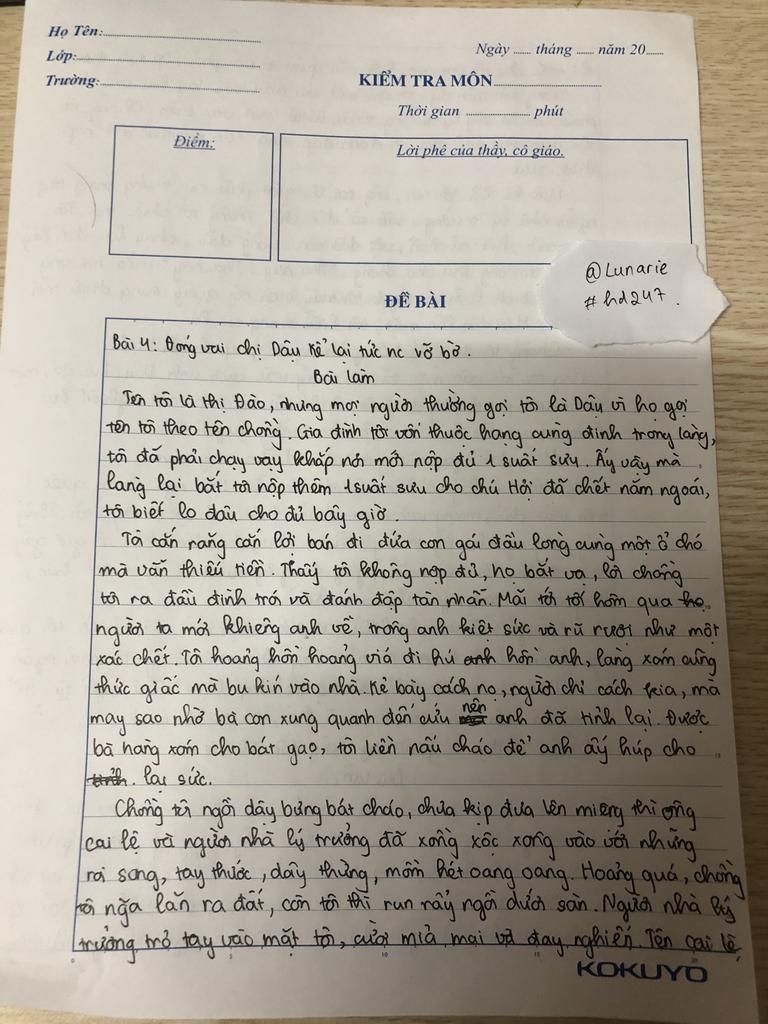 Họ Tên:
Ngày tháng năm 20
Lớp:
Trường:
KIỂM TRA MÔN
Thời gian phút
Điểm:
Lời phê của thầy, cô giáo.
@Lunarie
#hd247.
ĐỀ BÀI
Bài 4: Đóng vai chị Dậu kể lại tức nc vỡ bờ.
Bài làm
Tên tôi là thị Đào, nhưng mọi người thường gọi tôi là Dậu vì họ gọi
tên tôi theo tên chồng. Gia đình tôi vốn thuộc hạng cùng đinh trong làng,
tôi đã phải chạy vạy khắp nơi mới nộp đủ 1 suất sưu. Ấy vậy mà
làng lại bắt tôi nộp thêm 1 suất sưu cho chú Hợi đã chết năm ngoái,
tôi biết lo đâu cho đủ bây giờ.
Tôi cắn răng cắn lợi bán đi đứa con gái đầu lòng cùng một ổ chó
mà vẫn thiếu tiền. Thấy tôi không nộp đủ, họ bắt vạ, lôi chồng
tôi ra đầu đình trói và đánh đập tàn nhẫn. Mãi tới tối hôm qua họ
người ta mới khiêng anh về, trông anh kiệt sức và rũ rượi như một
xác chết. Tôi hoảng hồn hoảng vía đi hú anh hồn anh, làng xóm cũng
thức giấc mà bu kín vào nhà. Kẻ bày cách nọ, người chỉ cách kia, mà
may sao nhờ bà con xung quanh đến cứu nên anh đã tỉnh lại. Được
bà hàng xóm cho bát gạo, tôi liền nấu cháo để anh ấy húp cho
tỉnh. lại sức.
Chồng tôi ngồi dậy bưng bát cháo, chưa kịp đưa lên miệng thì ông
cai lệ và người nhà lý trưởng đã xồng xộc xông vào với những
roi song, tay thước, dây thừng, mồm hét oang oang. Hoảng quá, chồng
tôi ngã lăn ra đất, còn tôi thì run rẩy ngồi dưới sàn. Người nhà lý
trưởng trỏ tay vào mặt tôi, cười mỉa mai và đay nghiến. Tên cai lệ,
KOKUYO